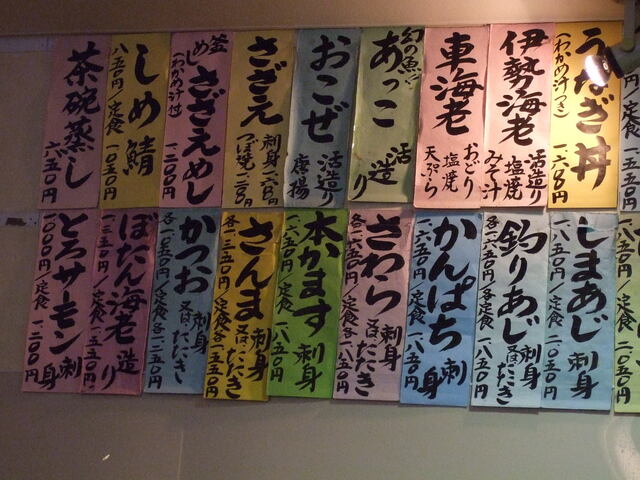 うなぎ丼
(わかめ汁つき)
一、六八〇円
伊勢海老
活造り
塩焼
みそ汁
車海老
おどり
塩焼
天ぷら
幻の魚
あっこ
活造り
おこぜ
活造り
唐揚
さざえ
刺身
つぼ焼
釜めし
さざえめし
(わかめ汁付)
一二〇〇円
しめ鯖
八五〇円/定食 一〇五〇円
茶碗蒸し
六五〇円
しまあじ
刺身
一八五〇円/定食 二〇五〇円
釣りあじ
刺身
又はたたき
各一六五〇円/各定食 一八五〇円
かんぱち
刺身
一六五〇円/定食 一八五〇円
さわら
刺身
又はたたき
各一三五〇円/定食各一五五〇円
本かます
刺身
一六五〇円/定食 一八五〇円
さんま
刺身
又はたたき
各一三五〇円/定食各一五五〇円
かつお
刺身
又はたたき
各一〇五〇円/定食各一二五〇円
ぼたん海老
造り
一三五〇円/定食 一五五〇円
とろサーモン
刺身
一〇〇〇円/定食 一二〇〇円